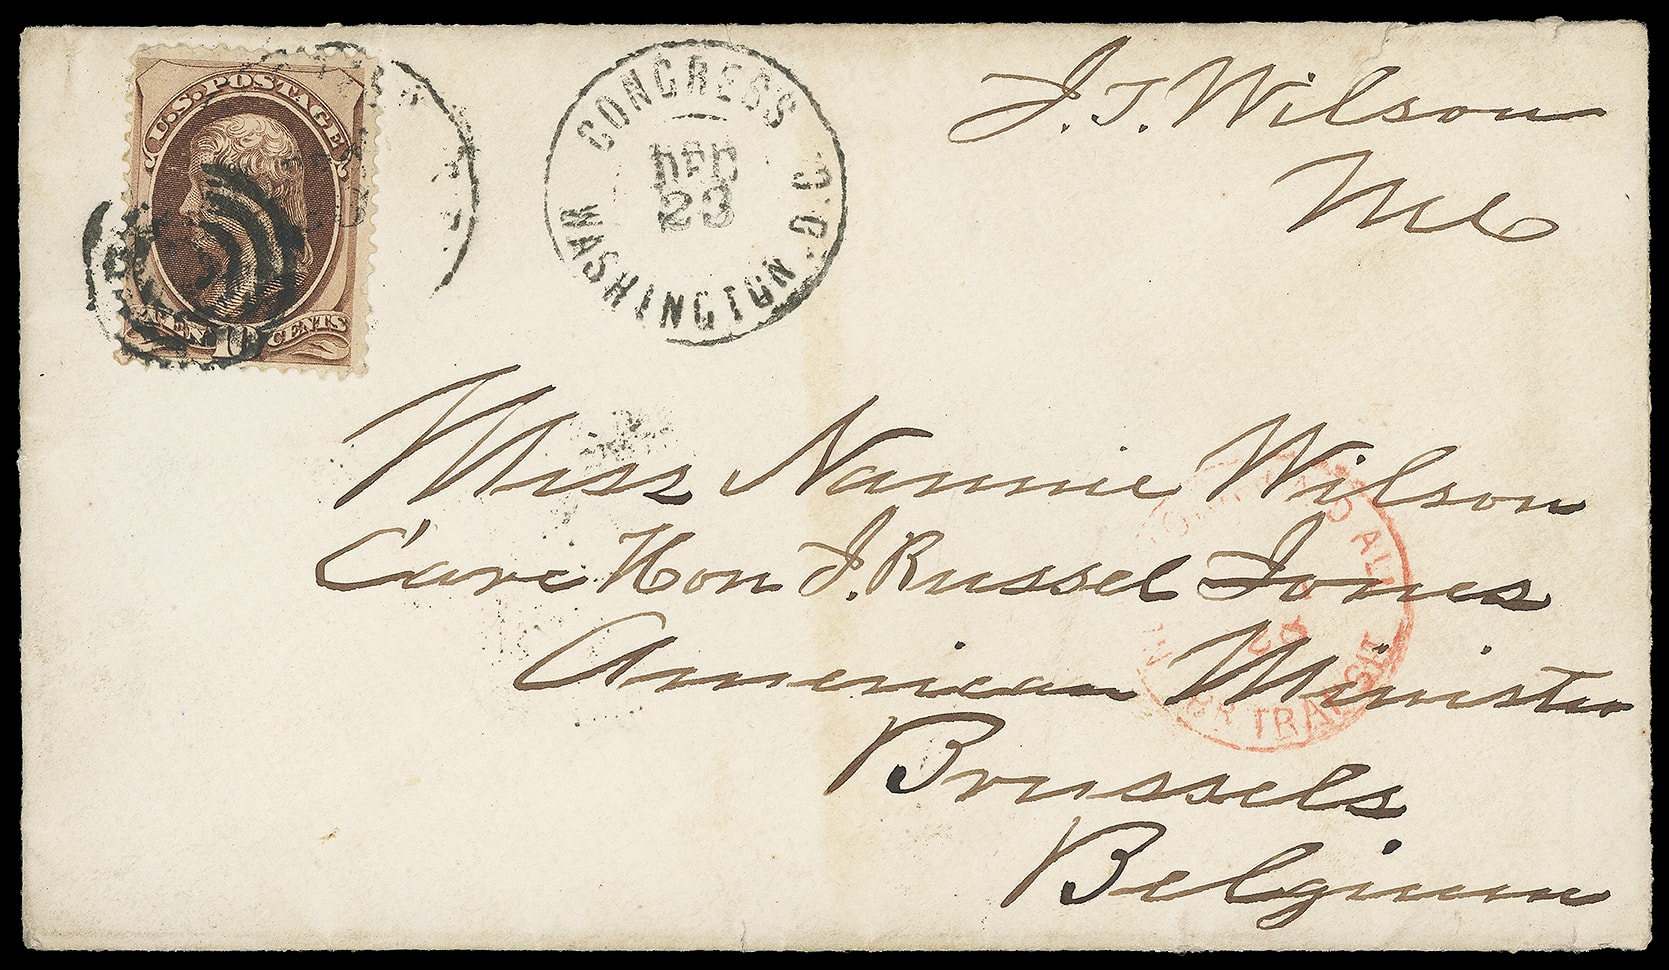 U.S. POSTAGE
TEN 10 CENTS
CONGRESS
DEC
23
WASHINGTON D.C.
J. T. Wilson
MC
Miss Nannie Wilson
Care Hon J. Russel Jones
American Minister
Brussels
Belgium
TRANSIT